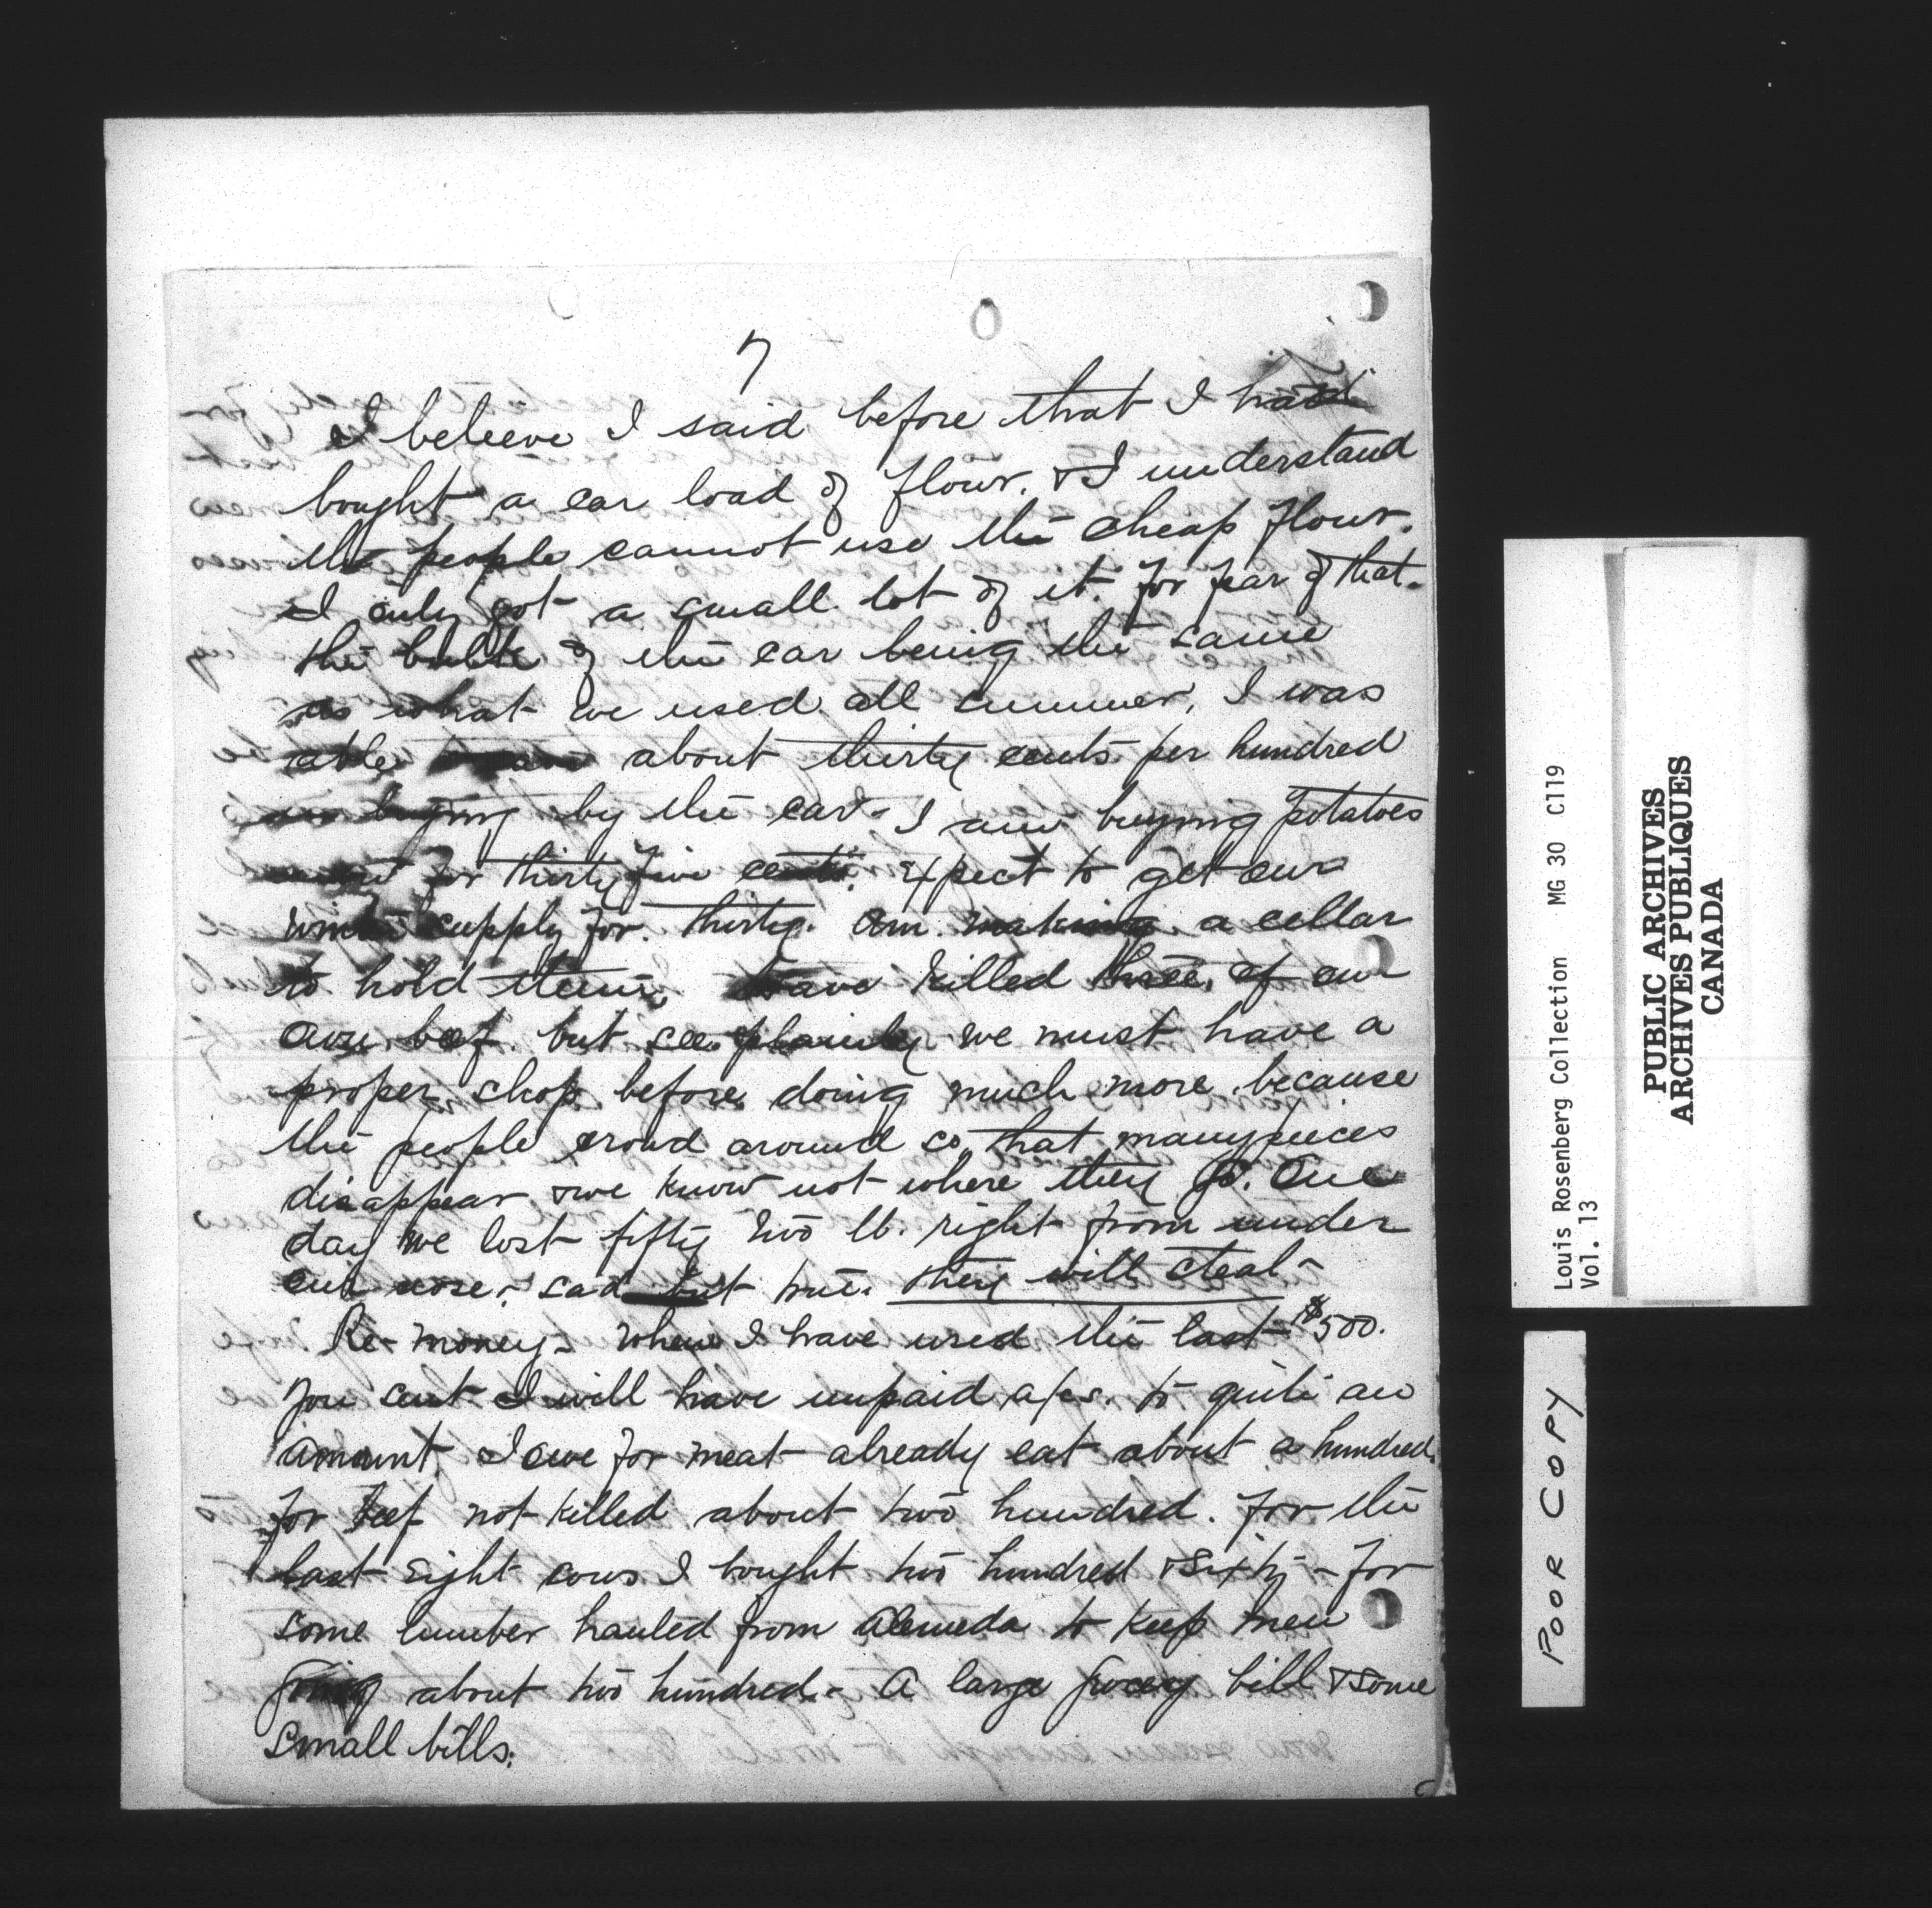 7
I beleeve I said before that I had
bought a car load of flour. & I understand
the people cannot use the cheap flour.
I only got a small lot of it. for fear of that.
the bulk of the car being the same
as what we used all summer, I was
able about thirty cents per hundred
buying by the car - I am buying potatoes
for thirty five cents. Expect to get our
winter supply for thirty. Am making a cellar
to hold them, Have killed three of our
own beef. but see plainly we must have a
proper shop before doing much more because
the people croud around so that many pieces
disappear & we know not where they go. One
day we lost fifty two lb. right from under
our nose - sad but true. they will steal -
Re- money - When I have used the last $500.
you sent I will have unpaid a/cs. to quite an
amount I owe for meat already eat about a hundred.
for beef not killed about two hundred. for the
last eight cows I bought two hundred & sixty - for
some lumber hauled from Alemeda to keep men
going about two hundred. - A large grocery bill & some
small bills.
Louis Rosenberg Collection MG 30 C119
Vol. 13
PUBLIC ARCHIVES
ARCHIVES PUBLIQUES
CANADA
POOR COPY